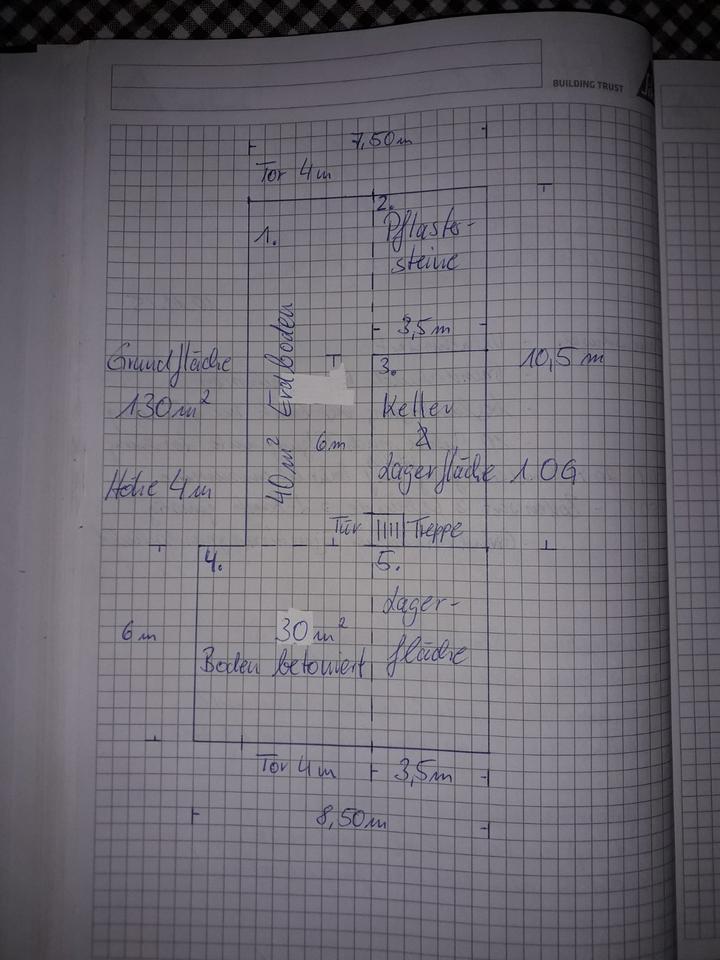 BUILDING TRUST
7,50m
Tor 4m
1.
2.
Pflaster-
steine
3,5m
Grundfläche
130m²
Höhe 4m
40m² Erdboden
6m
3.
Keller
&
Lagerfläche 1.OG
10,5m
Tür
Treppe
4.
5.
Lager-
fläche
6m
30m²
Boden betoniert
Tor 4m
3,5m
8,50m